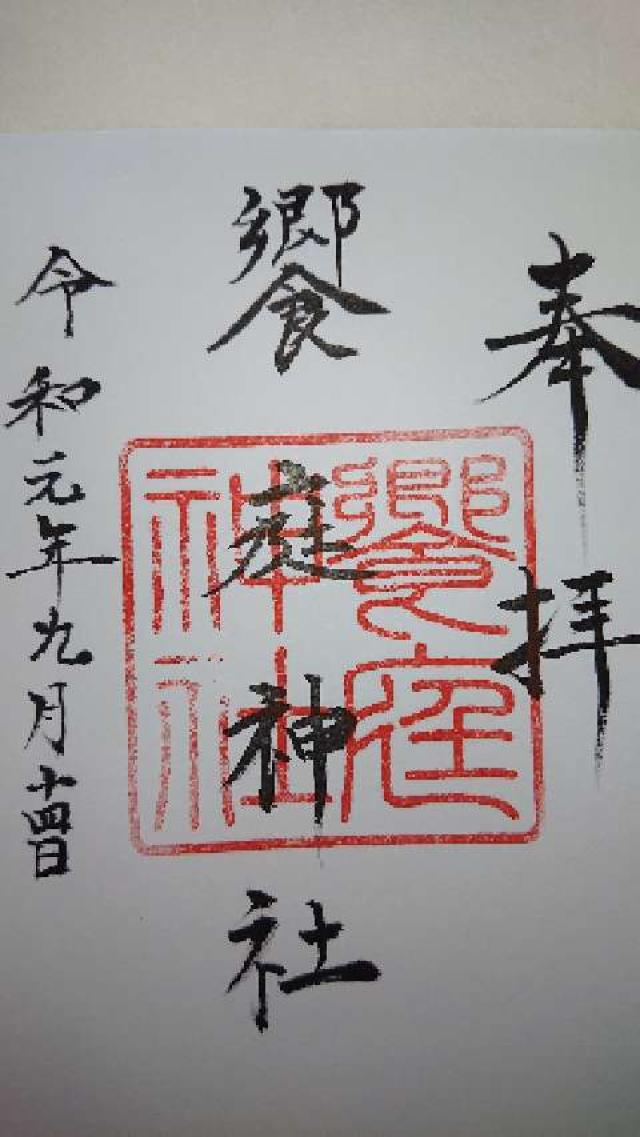 奉拝
饗庭神社
饗庭神社
令和元年九月十四日